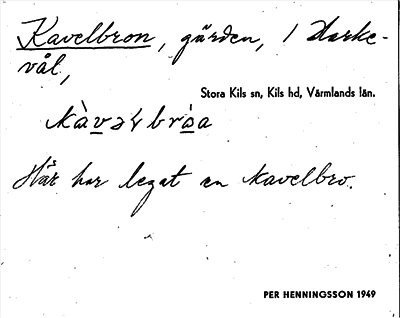 Kavelbron, gärden, i Harke-
vål,
Stora Kils sn, Kils hd, Värmlands län.
Här har legat en kavelbro.
PER HENNINGSSON 1949